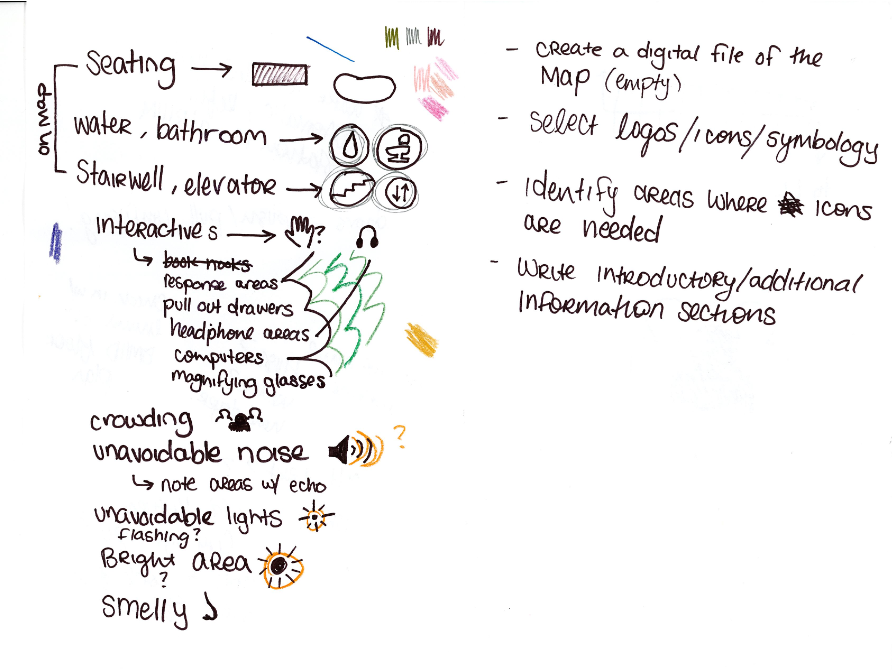 on map
Seating
water, bathroom
Stairwell, elevator
interactives ?
book nooks
response areas
pull out drawers
headphone areas
computers
magnifying glasses
crowding
unavoidable noise ?
note areas w/ echo
unavoidable lights
flashing?
Bright area
?
smelly
- create a digital file of the
Map (empty)
- select logos/icons/symbology
- identify areas where icons
are needed
- write introductory/additional
information sections